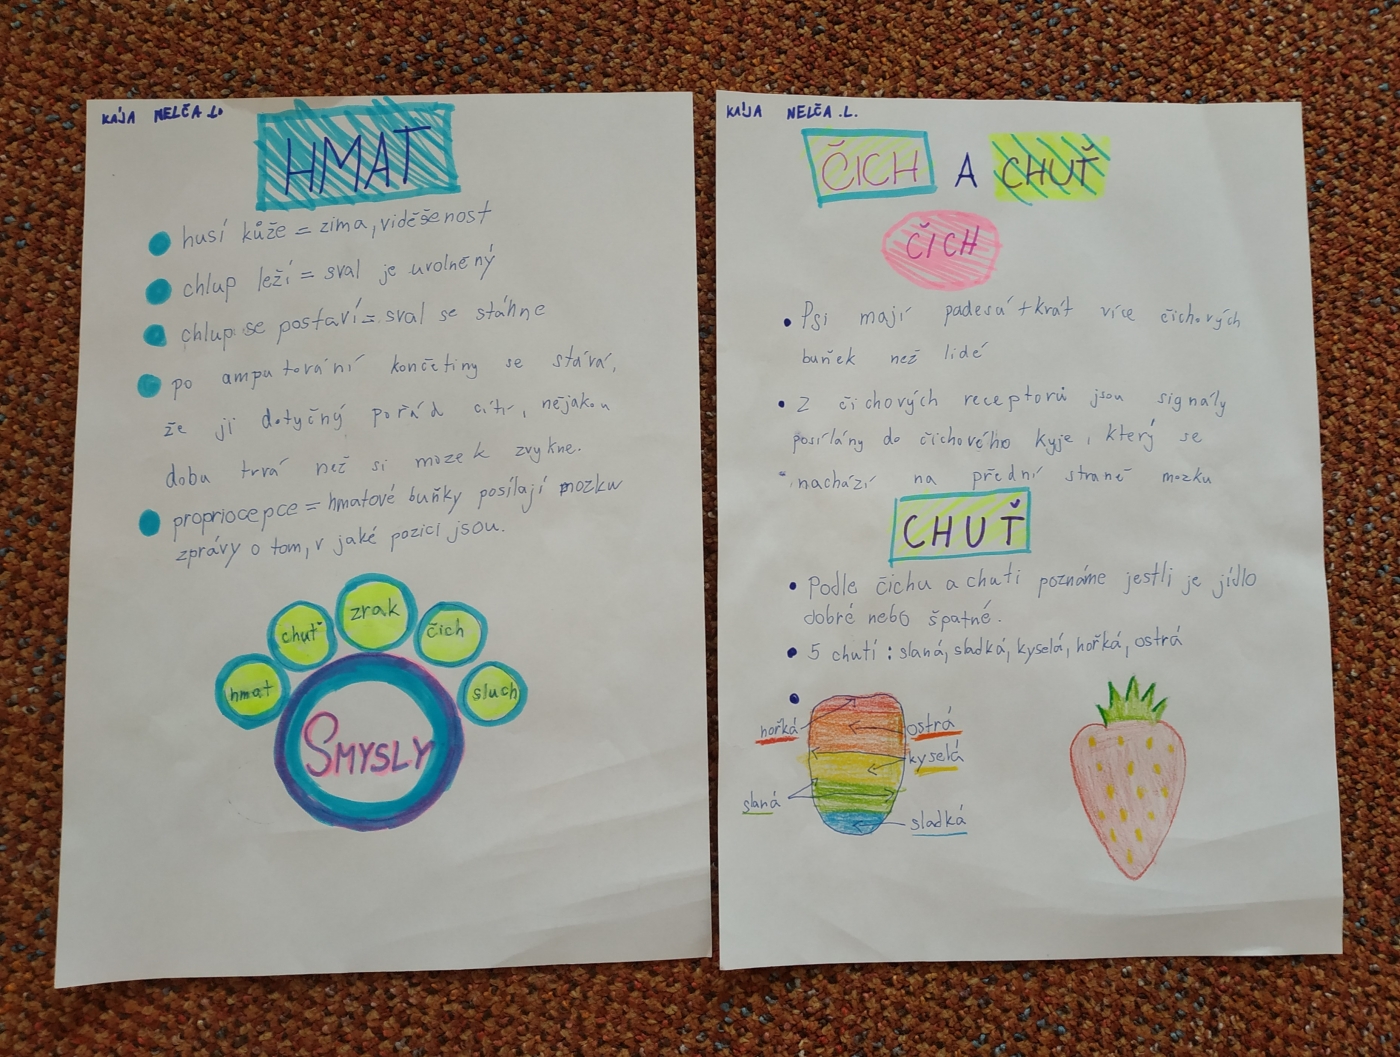 KÁJA NELČA .L.
HMAT
husí kůže = zima, viděšenost
chlup leží = sval je uvolněný
chlup se postaví = sval se stáhne
po amputování končetiny se stává,
že ji dotyčný pořád cítí, nějakou
dobu trvá než si mozek zvykne.
propriocepce = hmatové buňky posílají mozku
zprávy o tom, v jaké pozici jsou.
zrak
chuť
čich
hmat
sluch
SMYSLY
KÁJA NELČA .L.
ČICH A CHUŤ
ČICH
Psi mají padesátkrát více čichových
buněk než lidé
Z čichových receptorů jsou signály
posílány do čichového kyje, který se
nachází na přední straně mozku
CHUŤ
Podle čichu a chuti poznáme jestli je jídlo
dobré nebo špatné.
5 chutí : slaná, sladká, kyselá, hořká, ostrá
hořká
ostrá
kyselá
slaná
sladká